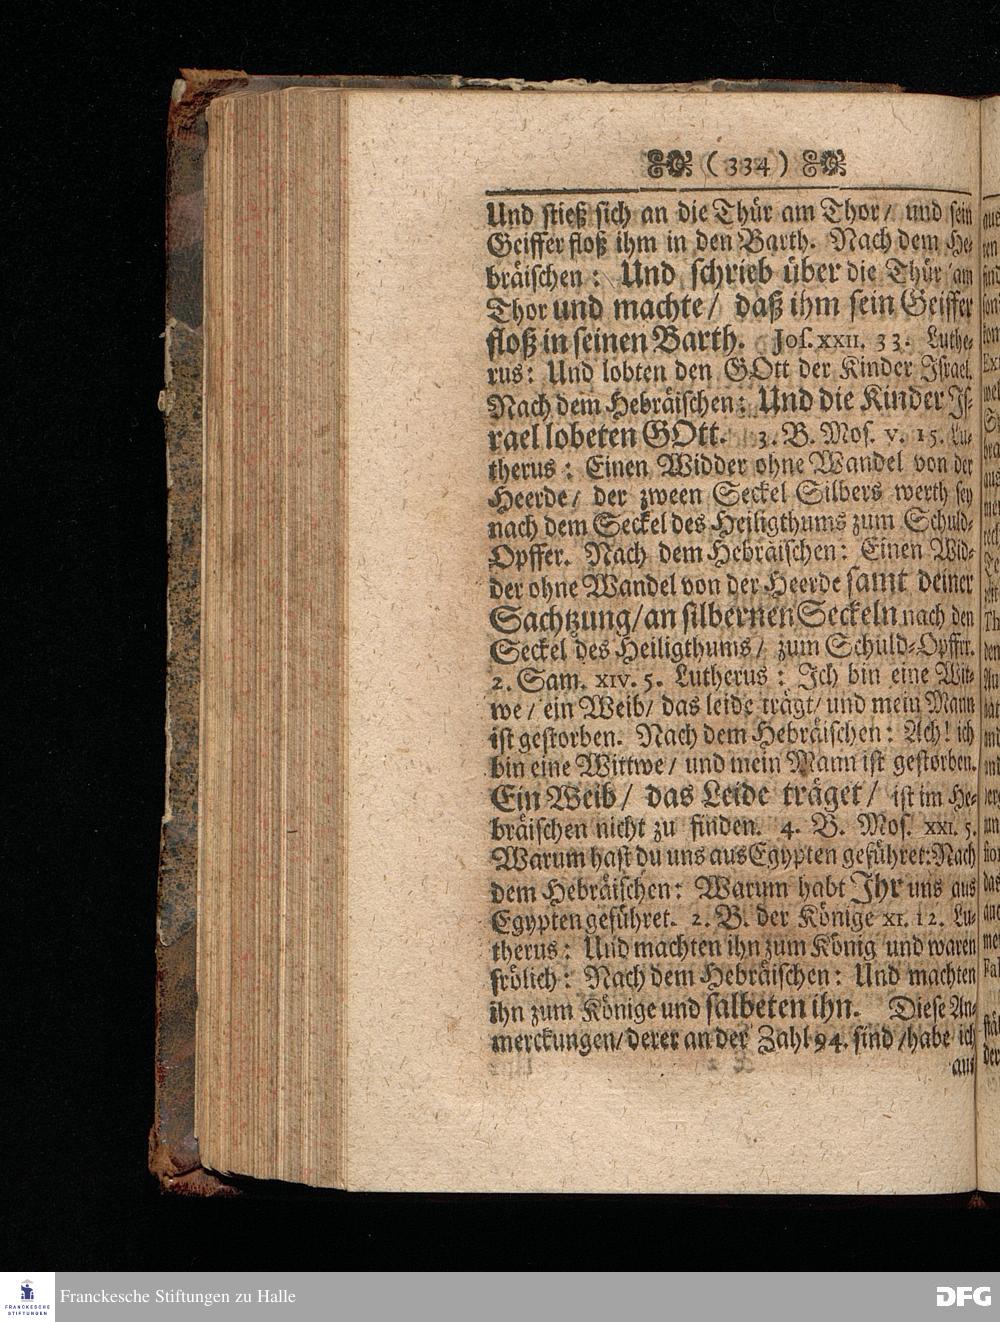 ( 334 )
Und stieß sich an die Thür am Thor/ und sein
Geiffer floß ihm in den Barth. Nach dem He-
bräischen: Und schrieb über die Thür am
Thor und machte/ daß ihm sein Geiffer
floß in seinen Barth. Jos. XXII. 33. Luthe-
rus: Und lobten den GOtt der Kinder Israel.
Nach dem Hebräischen: Und die Kinder Is-
rael lobeten GOtt. 3. B. Mos. V. 15. Lu-
therus: Einen Widder ohne Wandel von der
Heerde/ der zween Seckel Silbers werth sey
nach dem Seckel des Heiligthums zum Schuld-
Opffer. Nach dem Hebräischen: Einen Wid-
der ohne Wandel von der Heerde samt deiner
Sachtzung/ an silbernen Seckeln nach den
Seckel des Heiligthums/ zum Schuld-Opffer.
2. Sam. XIV. 5. Lutherus: Ich bin eine Wit-
we/ ein Weib/ das leide trägt/ und mein Mann
ist gestorben. Nach dem Hebräischen: Ach! ich
bin eine Wittwe/ und mein Mann ist gestorben.
Ein Weib/ das Leide träget/ ist im He-
bräischen nicht zu finden. 4. B. Mos. XXI. 5.
Warum hast du uns aus Egypten geführet: Nach
dem Hebräischen: Warum habt Ihr uns aus
Egypten geführet. 2. B. der Könige XI. 12. Lu-
therus: Und machten ihn zum König und waren
frölich: Nach dem Hebräischen: Und machten
ihn zum Könige und salbeten ihn. Diese An-
merckungen/ derer an der Zahl 94. sind/ habe ich
aus
FRANCKESCHE
STIFTUNGEN
Franckesche Stiftungen zu Halle
DFG